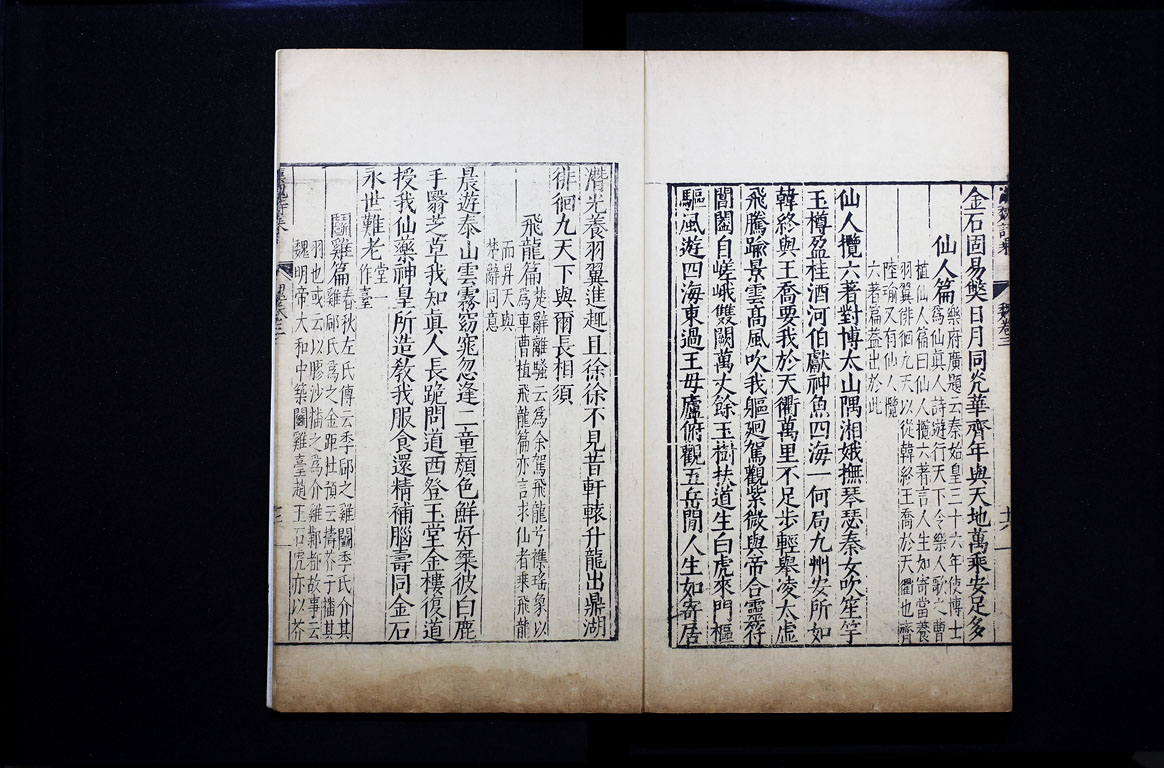 金石固易獘日月同光華齊年與天地萬乘安足多
仙人篇
樂府廣題云秦始皇三十六年使博士
爲仙真人詩遊行天下令樂人歌之曹
植仙人篇曰仙人攬六著言人生如寄當養
羽翼徘徊九天以從韓終王喬於天衢也齊
陸瑜又有仙人攬
六著篇蓋出於此
仙人攬六著對博太山隅湘娥撫琴瑟秦女吹笙竽
玉樽盈桂酒河伯獻神魚四海一何局九州安所如
韓終與王喬要我於天衢萬里不足步輕舉凌太虛
飛騰踰景雲高風吹我軀廻駕觀紫微與帝合靈符
閶闔自嵯峨雙闕萬丈餘玉樹扶道生白虎夾門樞
驅風遊四海東過王母廬俯觀五岳閒人生如寄居
潛光養羽翼進趣且徐徐不見昔軒轅升龍出鼎湖
徘徊九天下與爾長相須
飛龍篇
楚辭離騷云爲余駕飛龍兮雜瑤象以
爲車曹植飛龍篇亦言求仙者乘飛龍
而昇天與
楚辭同意
晨遊泰山雲霧窈窕忽逢二童顏色鮮好乘彼白鹿
手翳芝草我知真人長跪問道西登玉堂金樓復道
授我仙藥神皇所造敎我服食還精補腦壽同金石
永世難老
堂一
作臺
鬭雞篇
春秋左氏傳云季郈之雞鬭季氏介其
雞郈氏爲之金距杜預云擣芥子播其
羽也或云以膠沙播之爲介雞鄴都故事云
魏明帝大和中築鬭雞臺趙王石虎亦以芥